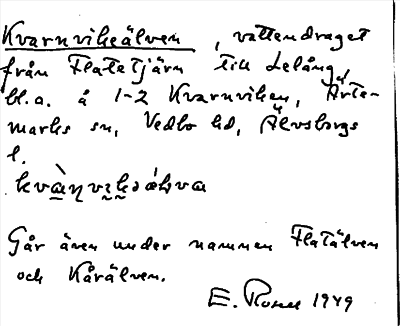 Kvarnvikeälven, vattendraget
från Flatetjärn till Lelång,
bl.a. å 1-2 Kvarnviken, Årte-
marks sn, Vedbo hd, Älvsborgs
l.
Går även under namnen Flatälven
och Kårälven.
E. Rosell 1949